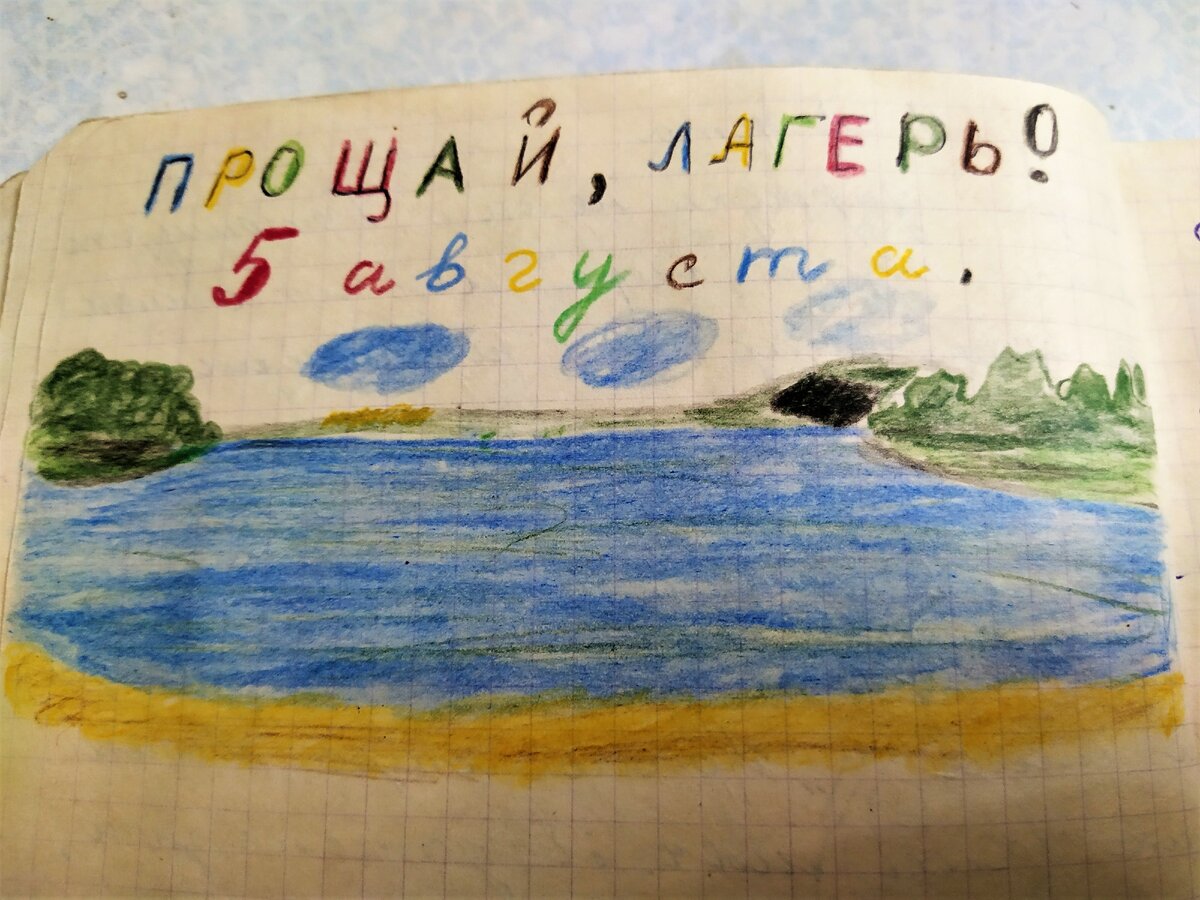 ПРОЩАЙ, ЛАГЕРЬ!
5 августа.